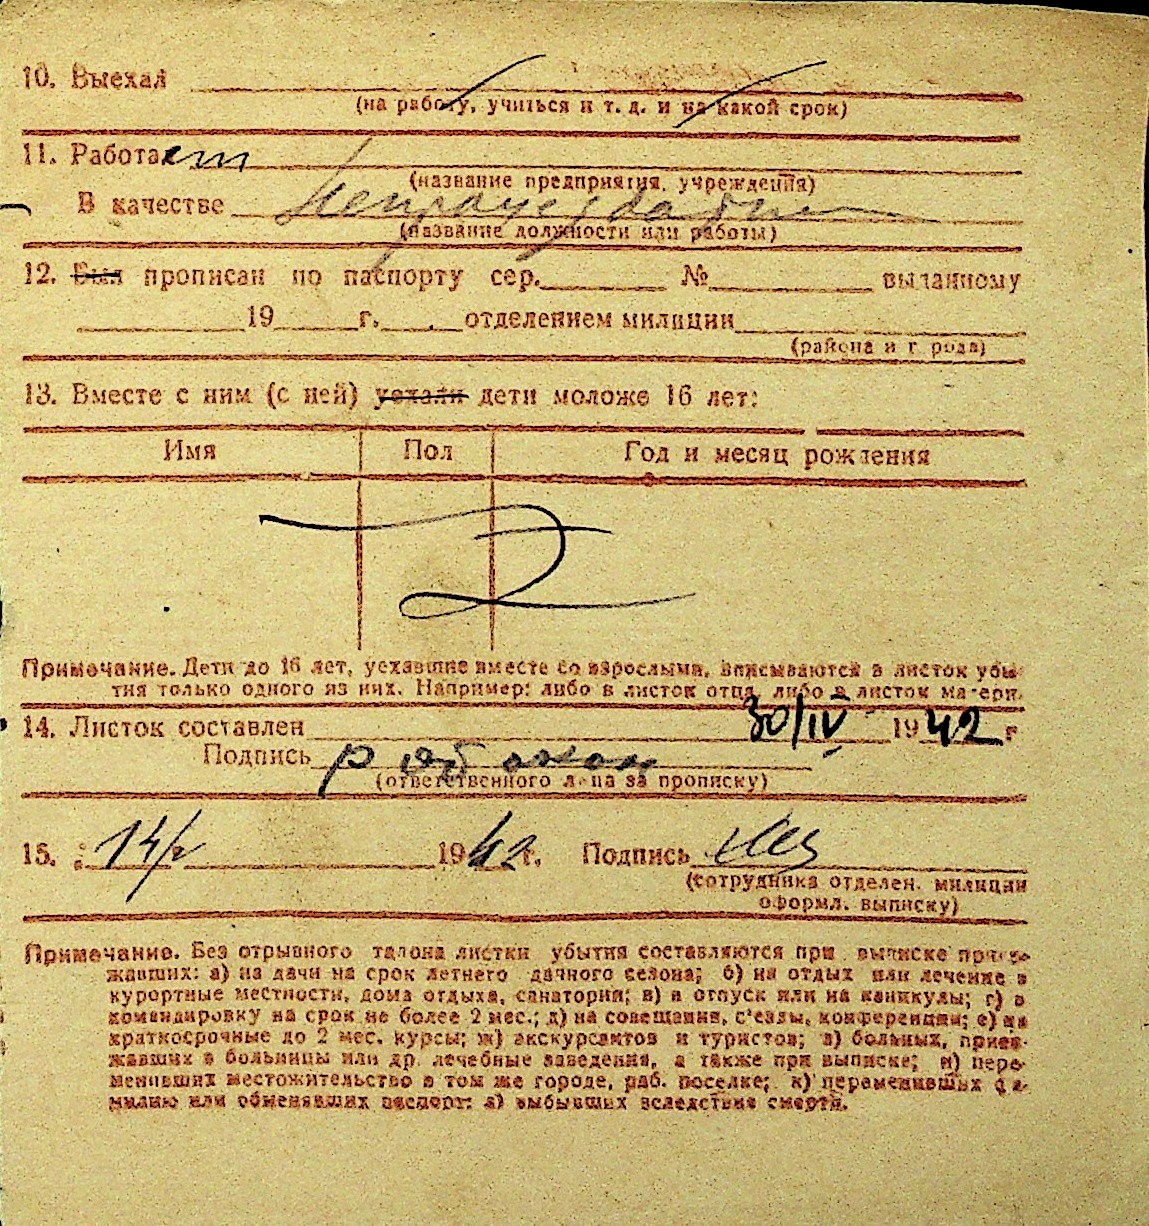 10. Выехал
(на работу, учиться и т. д. и на какой срок)
11. Работает
(название предприятия, учреждения)
В качестве
(название должности или работы)
12. Был прописан по паспорту сер. № выданному
19 г. отделением милиции
(района и города)
13. Вместе с ним (с ней) уехали дети моложе 16 лет:
Имя Пол Год и месяц рождения
Примечание. Дети до 16 лет, уехавшие вместе со взрослыми, вписываются в листок убы-
тия только одного из них. Например: либо в листок отца, либо в листок матери.
14. Листок составлен 30/IV 1942 г
Подпись
(ответственного лица за прописку)
15. 14/ 1942 г. Подпись
(сотрудника отделен. милиции
оформл. выписку)
Примечание. Без отрывного талона листки убытия составляются при выписке приез-
жавших: а) на дачи на срок летнего дачного сезона; б) на отдых или лечение в
курортные местности, дома отдыха, санатории; в) в отпуск или на каникулы; г) в
командировку на срок не более 2 мес.; д) на совещания, с'езды, конференции; е) на
краткосрочные до 2 мес. курсы; ж) экскурсантов и туристов; з) больных, приез-
жавших в больницы или др. лечебные заведения, а также при выписке; и) пере-
менивших местожительство в том же городе, раб. поселке; к) переменивших фа-
милию или обменявших паспорт; л) выбывших вследствие смерти.